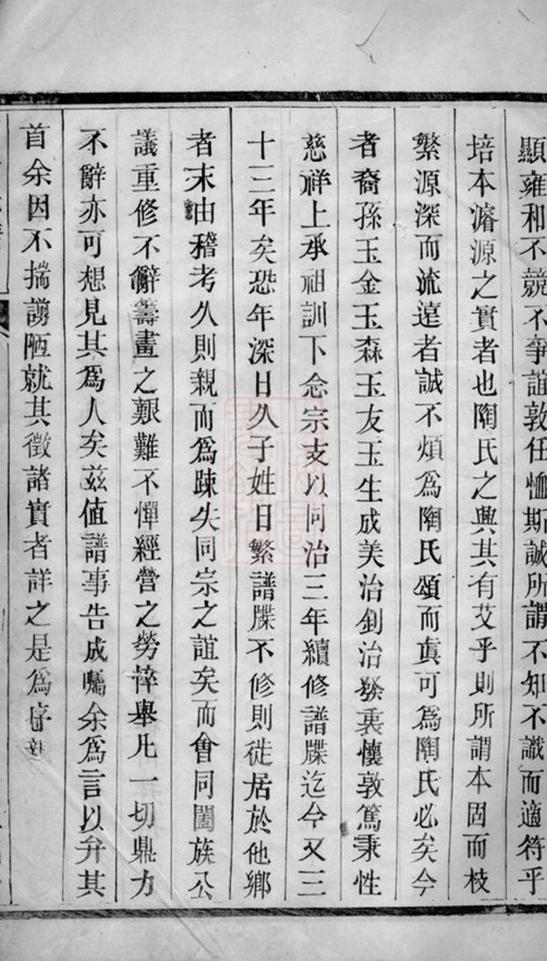 顯雍和不競不爭誼敦任恤斯誠所謂不知不識而適符乎
培本濬源之實者也陶氏之興其有艾乎則所謂本固而枝
繁源深而流遠者誠不煩爲陶氏頌而眞可爲陶氏必矣今
者裔孫玉金玉森玉友玉生成美治釗治發裏懷敦篤秉性
慈祥上承祖訓下念宗支以同治三年續修譜牒迄今又三
十三年矣恐年深日久子姓日繁譜牒不修則徙居於他鄉
者末由稽考久則親而爲踈失同宗之誼矣而會同闔族公
議重修不辭籌畫之艱難不憚經營之勞悴舉凡一切鼎力
不辭亦可想見其爲人矣茲值譜事告成囑余爲言以弁其
首余因不揣謭陋就其徵諸實者詳之是爲序